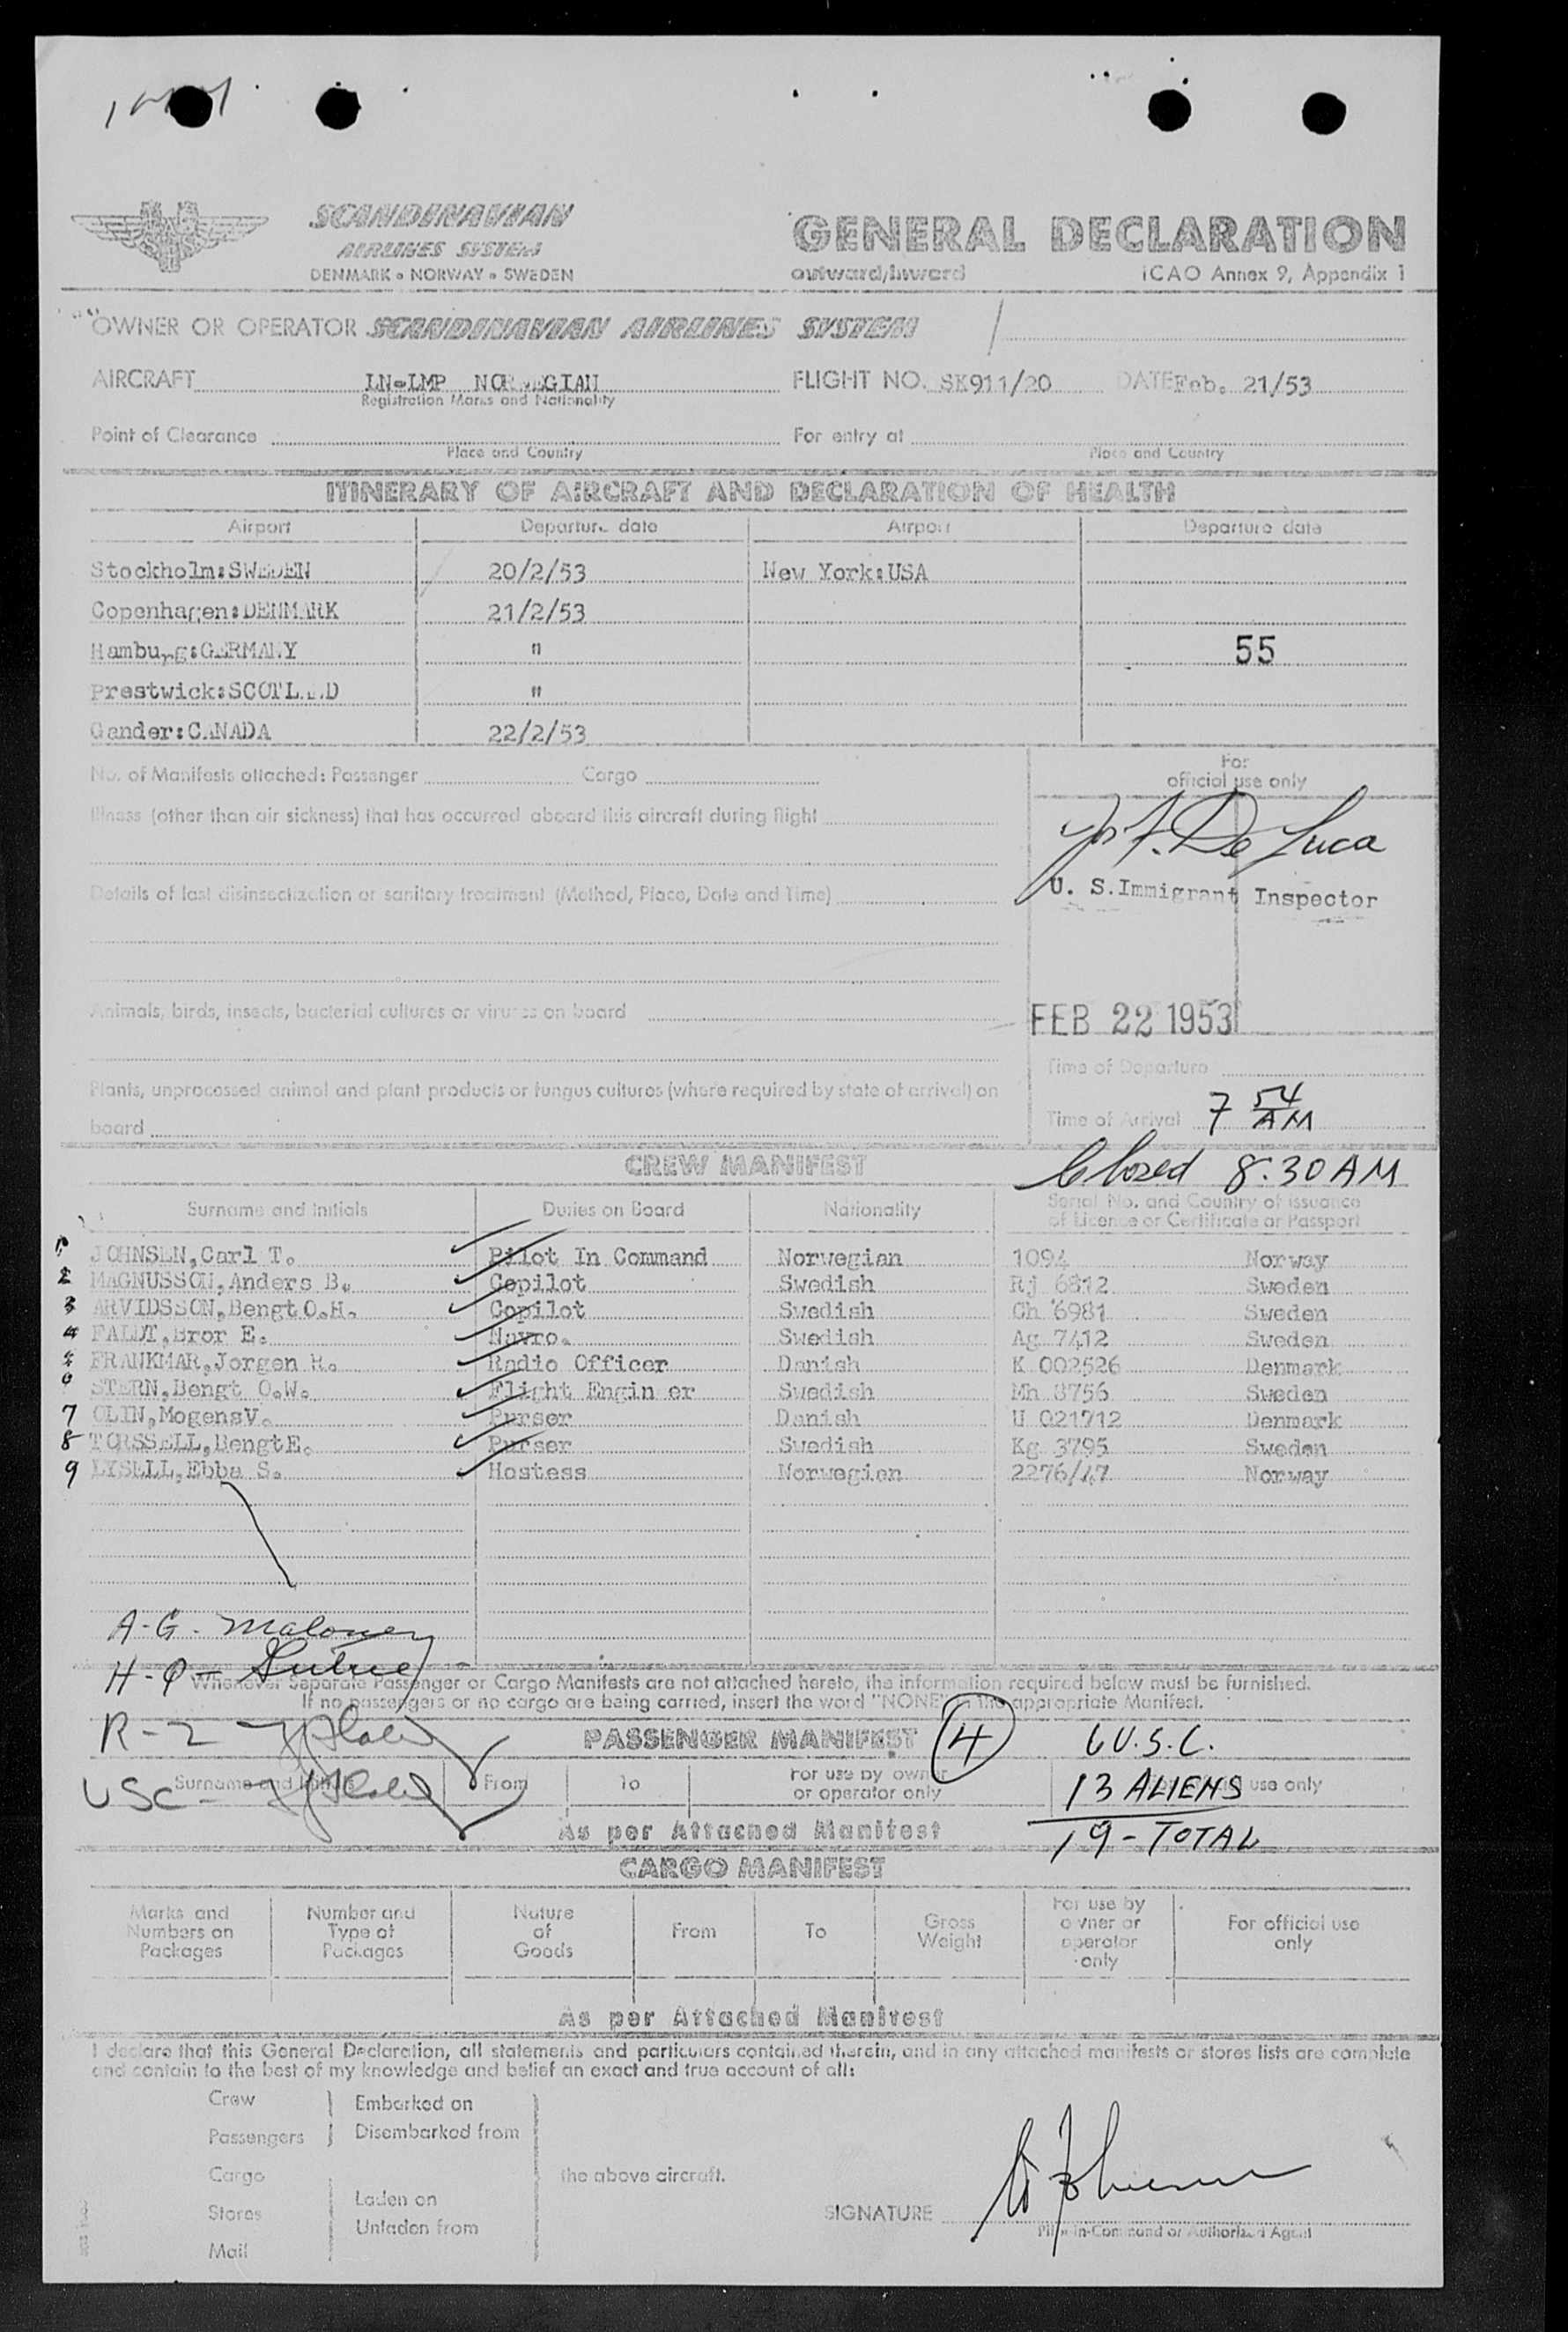 SCANDINAVIAN
AIRLINES SYSTEM
DENMARK • NORWAY • SWEDEN
GENERAL DECLARATION
outward/inward
ICAO Annex 9, Appendix 1
OWNER OR OPERATOR SCANDINAVIAN AIRLINES SYSTEM
AIRCRAFT LN-LMP NORWEGIAN FLIGHT NO. SK911/20 DATE Feb. 21/53
Registration Marks and Nationality
Point of Clearance For entry at
Place and Country Place and Country
ITINERARY OF AIRCRAFT AND DECLARATION OF HEALTH
Airport Departure date Airport Departure date
Stockholm:SWEDEN 20/2/53 New York:USA
Copenhagen:DENMARK 21/2/53
Hamburg:GERMANY " 55
Prestwick:SCOTLAND "
Gander:CANADA 22/2/53
No. of Manifests attached: Passenger Cargo
For
official use only
Illness (other than air sickness) that has occurred aboard this aircraft during flight
De Luca
U. S. Immigrant Inspector
Details of last disinsectization or sanitary treatment (Method, Place, Date and Time)
Animals, birds, insects, bacterial cultures or viruses on board
FEB 22 1953
Time of Departure
Plants, unprocessed animal and plant products or fungus cultures (where required by state of arrival) on
board
Time of Arrival 7 54 AM
CREW MANIFEST
Closed 8.30 AM
Surname and Initials Duties on Board Nationality Serial No. and Country of issuance
of Licence or Certificate or Passport
JOHNSEN,Carl T. Pilot In Command Norwegian 1094 Norway
2 MAGNUSSON,Anders B. Copilot Swedish Rj 6812 Sweden
3 ARVIDSSON,Bengt O.H. Copilot Swedish Gh 6981 Sweden
4 FALDT,Bror E. Navro. Swedish Ag 7412 Sweden
FRANKMAR,Jorgen H. Radio Officer Danish K 002526 Denmark
STERN,Bengt O.W. Flight Engineer Swedish Mh 8756 Sweden
7 OLIN,MogensV. Purser Danish U 021712 Denmark
8 TORSSELL,BengtE. Purser Swedish Kg 3795 Sweden
9 LYSELL,Ebba S. Hostess Norwegian 2276/47 Norway
A-G. Maloney
H-Q -
Whenever Separate Passenger or Cargo Manifests are not attached hereto, the information required below must be furnished.
If no passengers or no cargo are being carried, insert the word "NONE" in the appropriate Manifest.
R-2
PASSENGER MANIFEST 4 6 U.S.C.
USC -
Surname and Initials From To For use by owner
or operator only
13 ALIENS use only
As per Attached Manifest
19-TOTAL
CARGO MANIFEST
Marks and
Numbers on
Packages
Number and
Type of
Packages
Nature
of
Goods
From
To
Gross
Weight
For use by
owner or
operator
only
For official use
only
As per Attached Manifest
I declare that this General Declaration, all statements and particulars contained therein, and in any attached manifests or stores lists are complete
and contain to the best of my knowledge and belief an exact and true account of all:
Crew
Passengers
Embarked on
Disembarked from
Cargo
Stores
Mail
Laden on
Unladen from
the above aircraft.
SIGNATURE
Pilot-in-Command or Authorized Agent